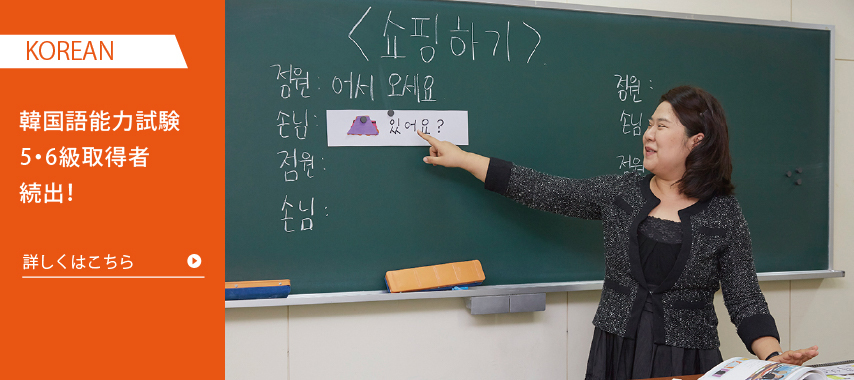 KOREAN
韓国語能力試験
5・6級取得者
続出!
詳しくはこちら
<쇼핑하기>
점원: 어서 오세요
손님: 있어요?
점원:
손님:
점원:
손님
점원